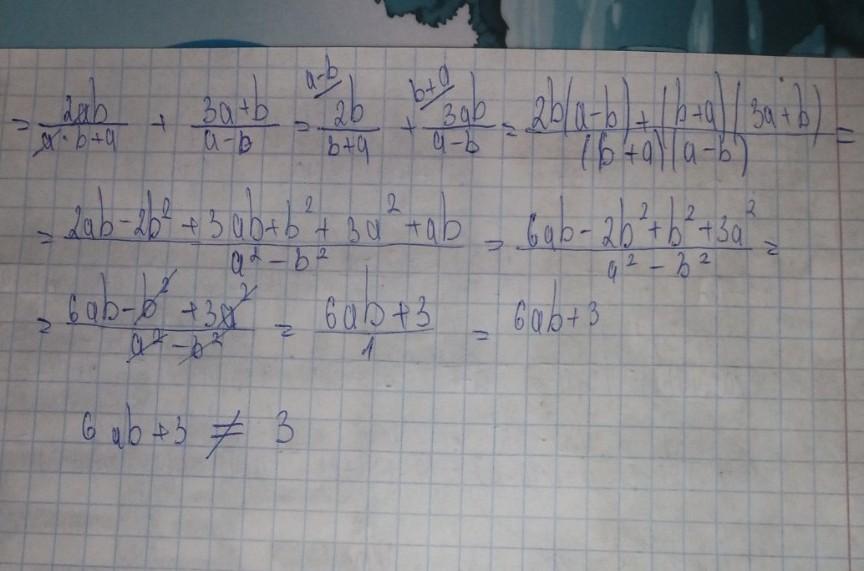 = 2ab/(a·b+a) + (3a+b)/(a-b) = 2b/(b+a) (a-b + 3ab/(a-b) (b+a = (2b(a-b)+(b+a)(3a+b))/((b+a)(a-b)) =
= (2ab-2b²+3ab+b²+3a²+ab)/(a²-b²) = (6ab-2b²+b²+3a²)/(a²-b²) =
= (6ab-b²+3a²)/(a²-b²) = (6ab+3)/1 = 6ab+3
6ab+3 ≠ 3